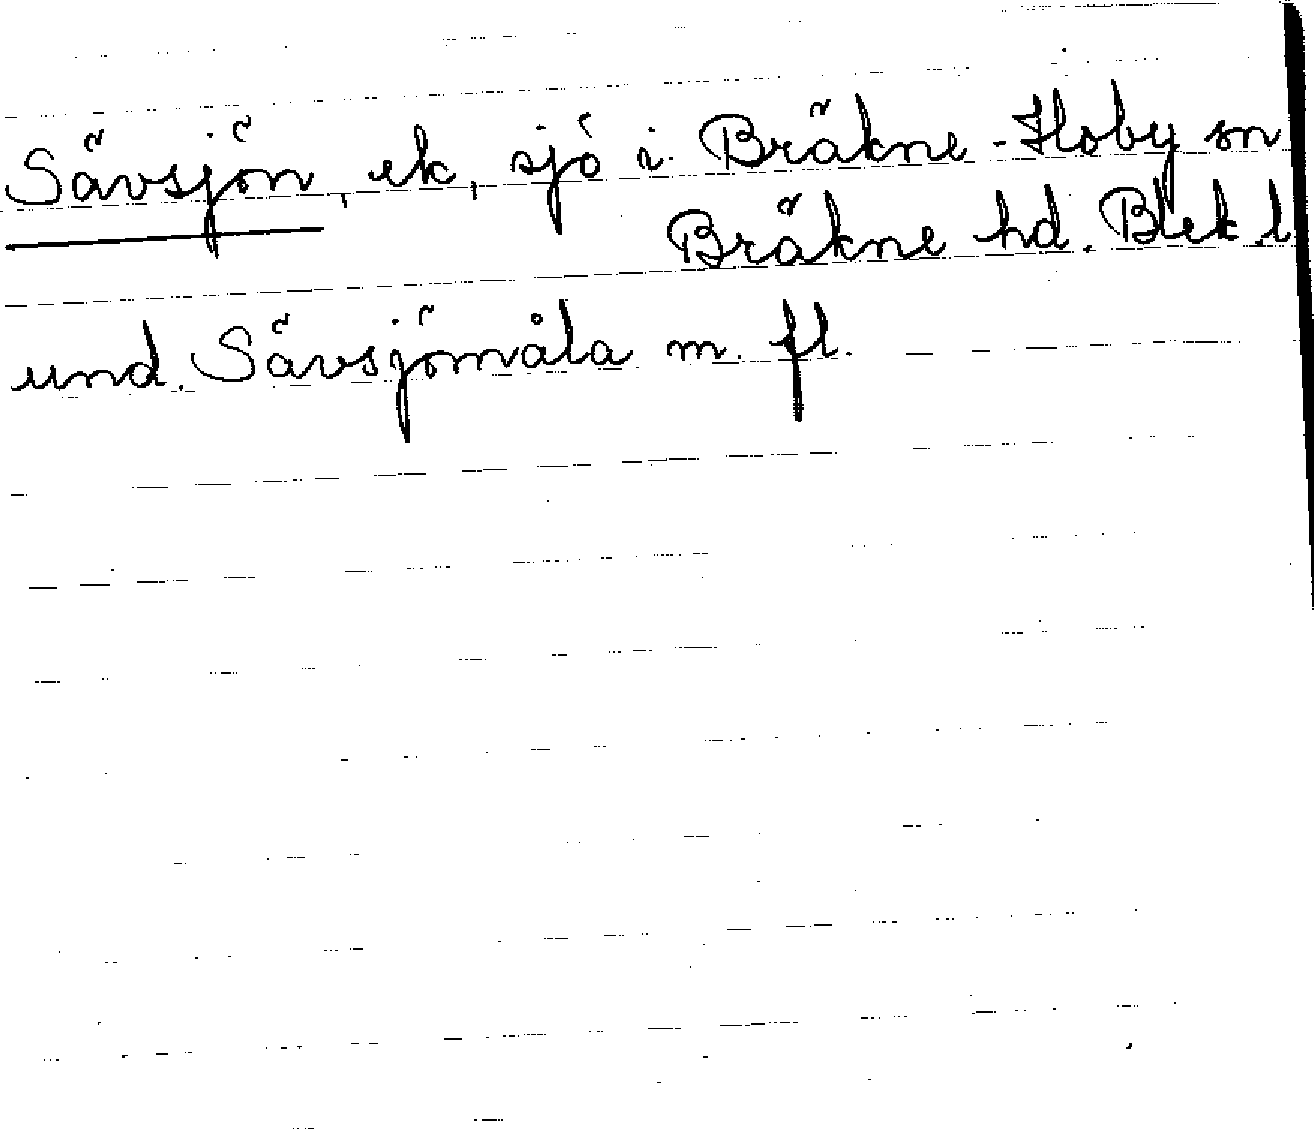 Sävsjön, ek, sjö i Bräkne-Hoby sn
Bräkne hd. Blek l
und. Sävsjömåla m. fl.